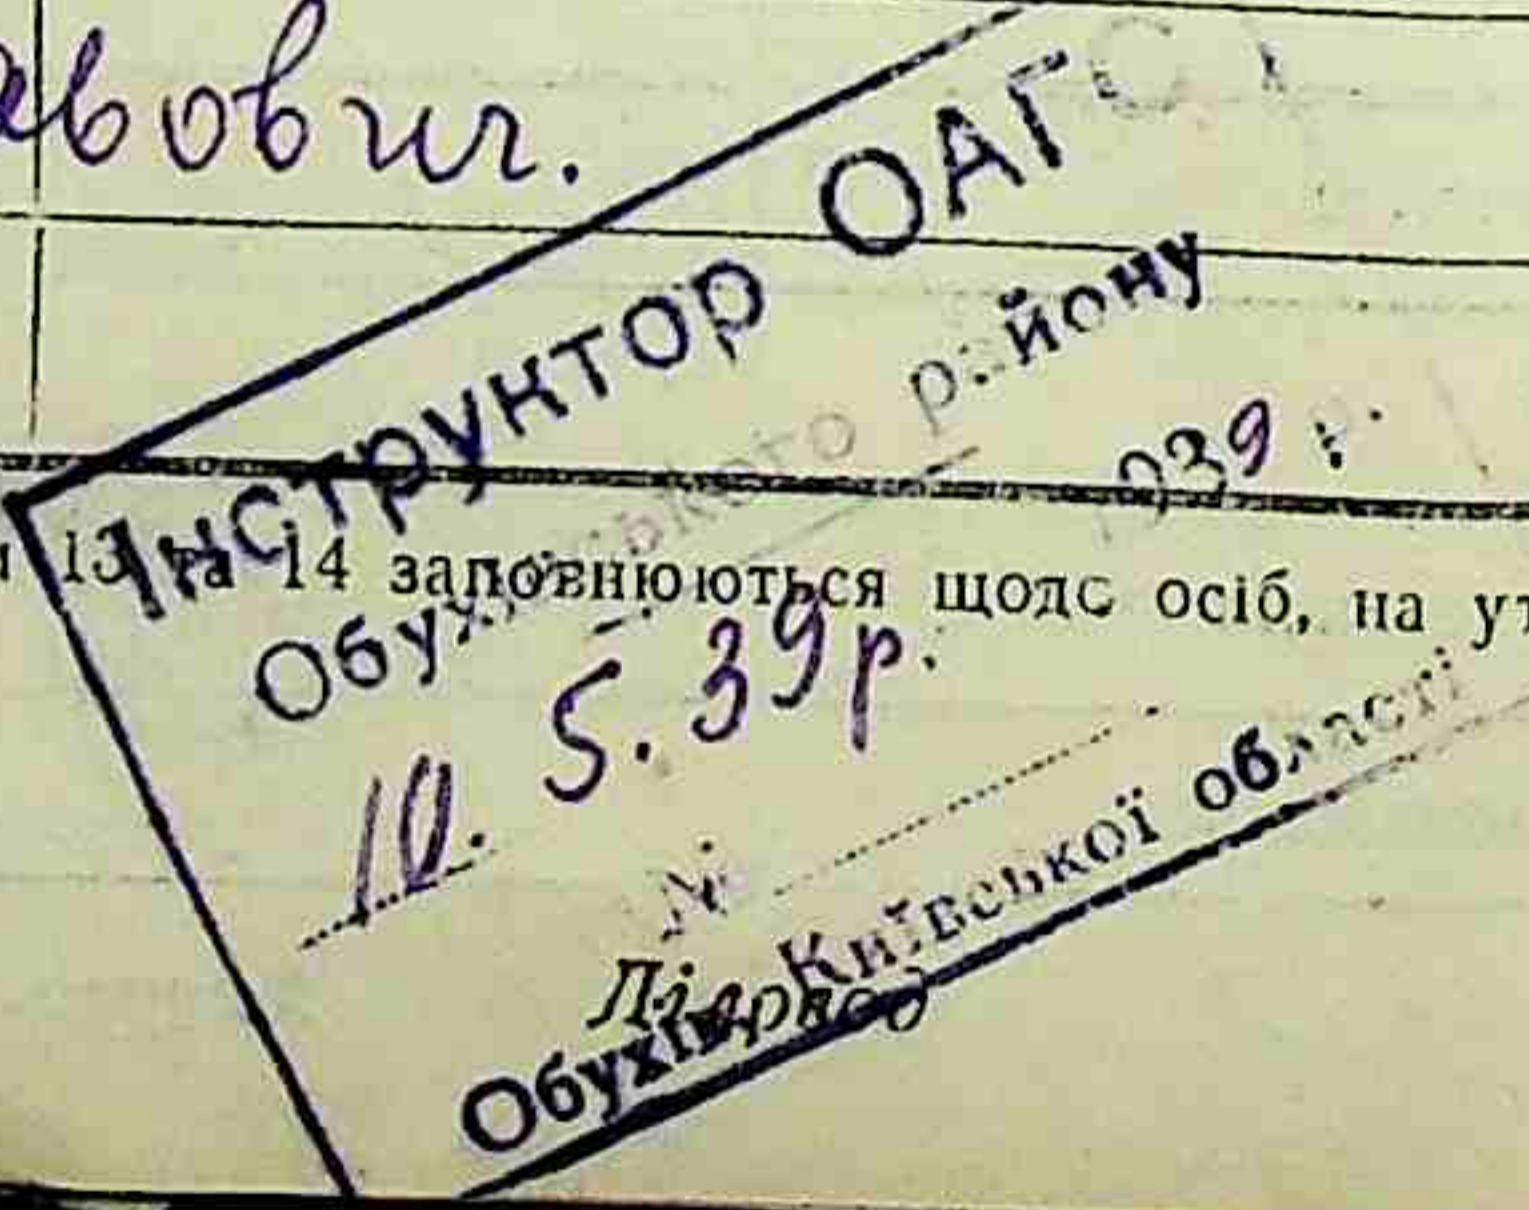 авович.
Інструктор ОАГС
Обух ського району
1939 р.
13 та 14 заповнюються щодо осіб, на ут
10. 5. 39 р.
№
Обухів, Київської області